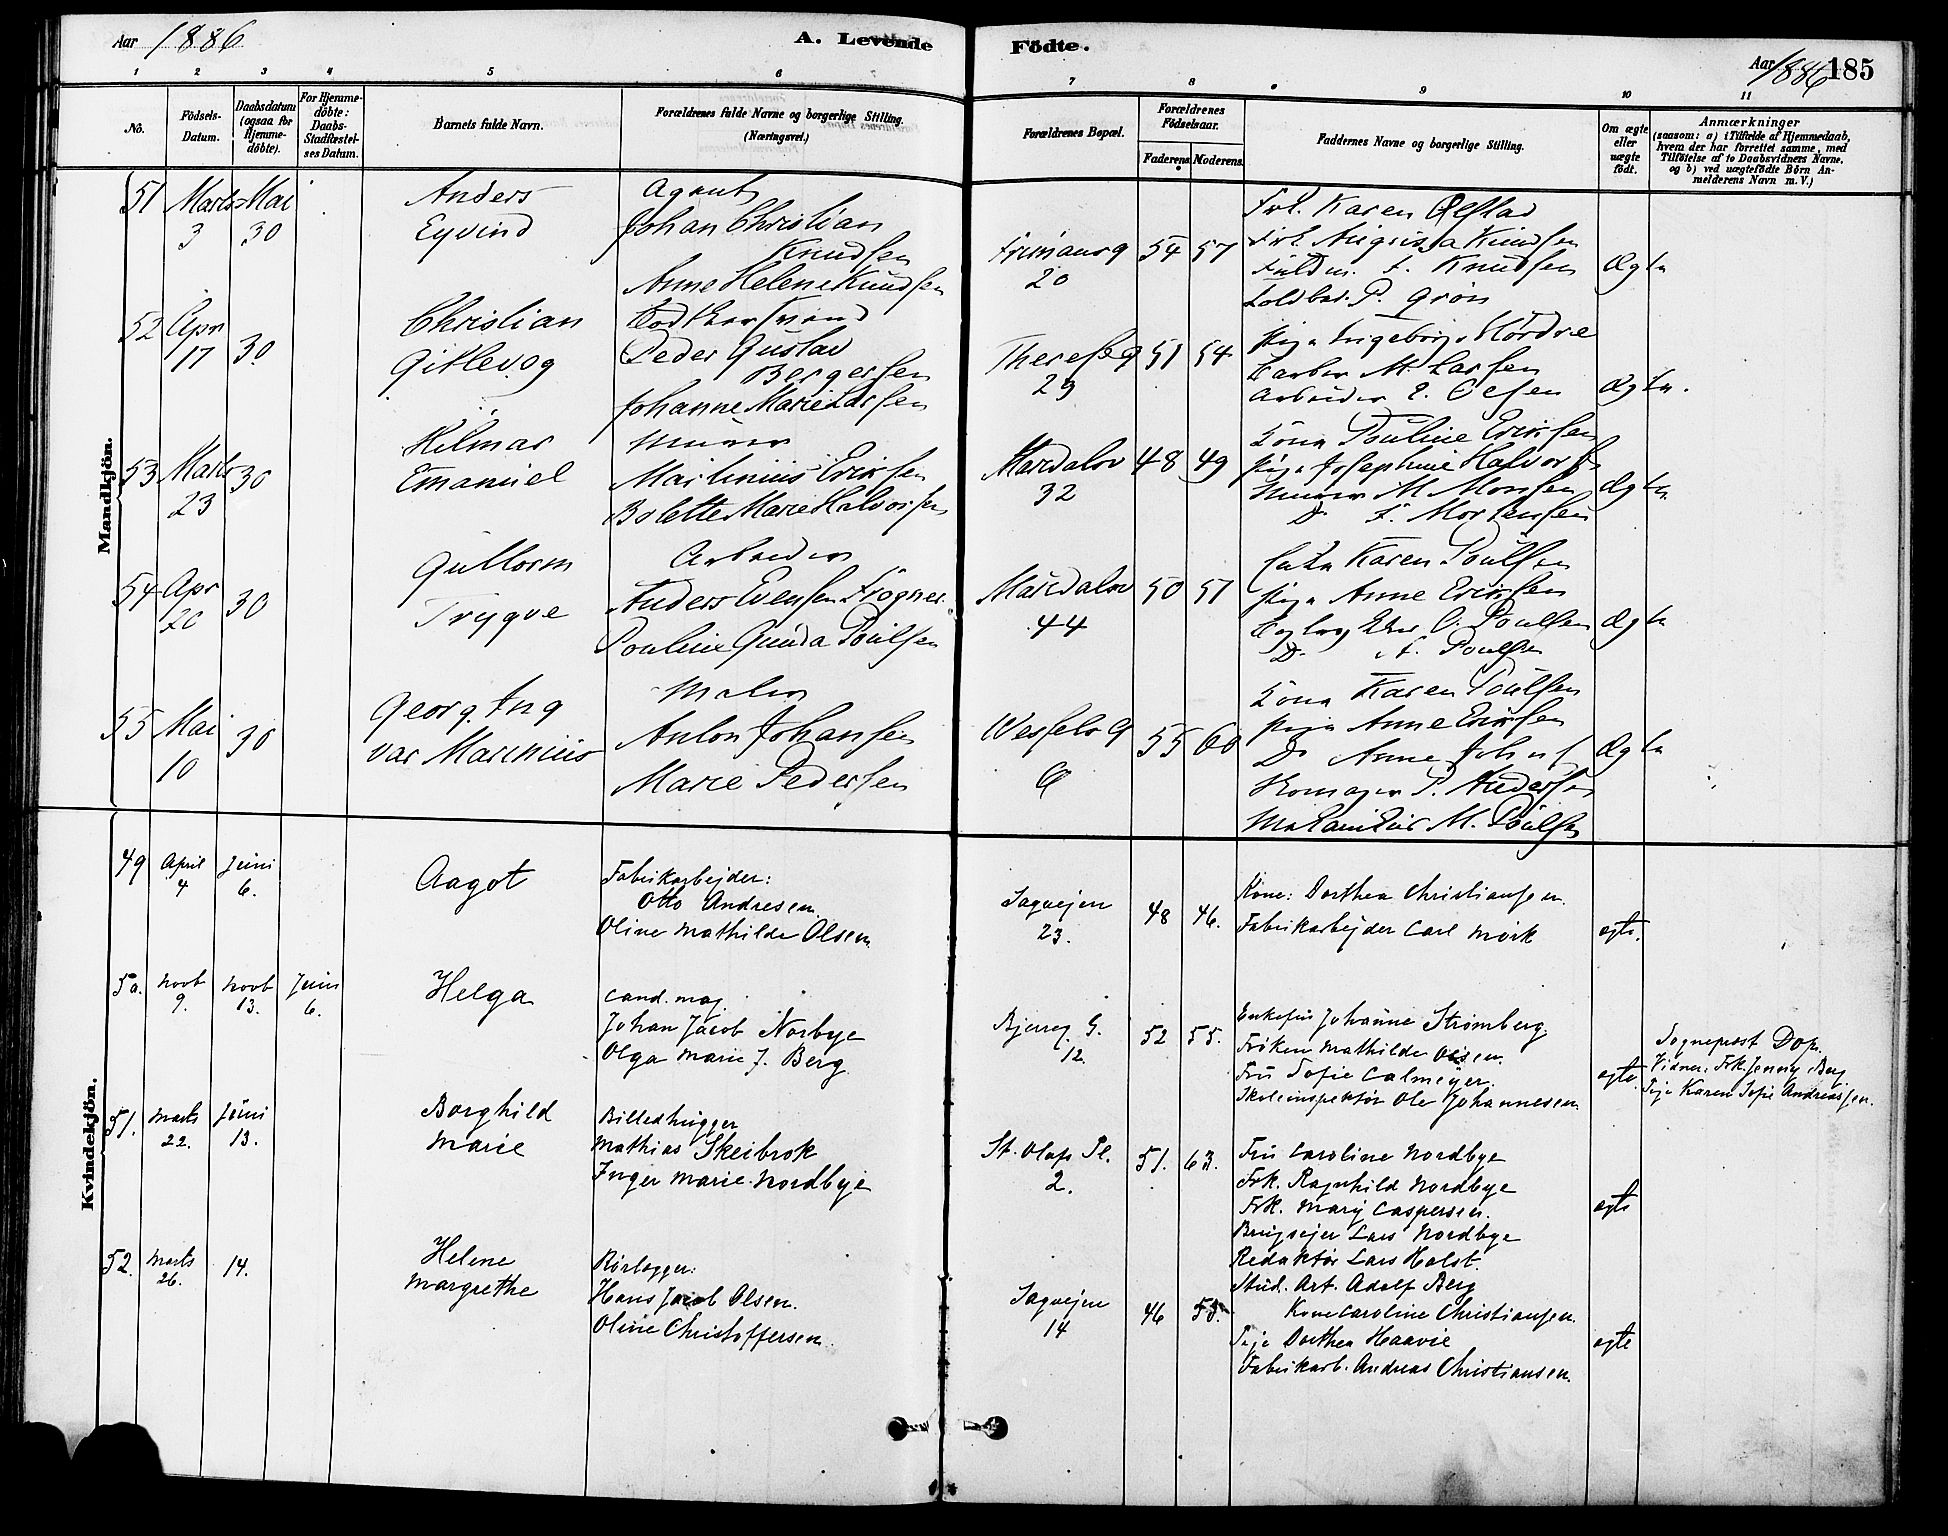 Aar 1886
A. Levende
Födte.
Aar 1886
185
1 2 3 4 5 6 7
7 8 9 10 11
No.
Födsels-
Datum.
Daabsdatum
(ogsaa for
Hjemme-
döbte).
For Hjemme-
döbte:
Daabs-
Stadfæstel-
ses Datum.
Barnets fulde Navn.
Forældrenes fulde Navne og borgerlige Stilling.
(Næringsvei.)
Forældrenes Bopæl.
Forældrenes
Födselsaar.
Faderens.
Moderens.
Faddernes Navne og borgerlige Stilling.
Om ægte
eller
uægte
födt.
Anmærkninger
(saasom: a) i Tilfælde af Hjemmedaab,
hvem der har forrettet samme, med
Tilföielse af to Daabsvidners Navne,
og b) ved uægtefödte Börn An-
melderens Navn m. V.)
Mandkjön.
51 Marts 3 Mai 30
Anders
Eyvind
Agent
Johan Christian
Knudsen
Anne Helene Knudsen
20
54 57
Frk. Karen Ølstad
Frk. Augusta Knudsen
Fuldm. Knudsen
P. Grøn
Ægte
52 Apr 17 30
Christian
Gitlev
Peder Gustav
Bergersen
Johanne Marie Larsen
Thereseg
29
51 54
Pige Ingeborg Nordre
M. Larsen
Arbeider E. Olsen
Ægte.
53 Marts 23 30
Hilmar
Emanuel
Murer
Martinius Eriksen
Bolette Marie Halvorsen
Maridalsv
32
48 49
Kona Pauline Eriksen
Pige Josephine Halvors
Murer M. Monsen
Do Mortensen
Ægte
54 Apr 20 30
Guttorm
Trygve
Arbeider
Anders Evensen Frogner
Pouline Gunda Poulsen
Maridalsv
44
50 57
Enke Karen Poulsen
Pige Anne Eriksen
O. Poulsen
Do A. Poulsen
Ægte
55 Mai 10 30
Georg Ing
var Marinius
Maler
Anton Johansen
Marie Pedersen
Wesselsg
6
55 60
Kona Karen Poulsen
Pige Anne Eriksen
Do Anne Johns
P. Andersen
M. Poulsen
Ægte
Kvindekjön.
49 April 4 Juni 6.
Aagot
Fabrikarbejder:
Otto Andresen
Oline Mathilde Olsen
Sagvejen
23.
48 46.
Kone: Dorthea Christiansen.
Fabrikarbejder Carl Mørk
ægte.
50. Novb 9. Novb 13. Juni 6.
Helga
Cand. mag.
Johan Jacob Norbye
Olga Marie J. Berg
Bjerreg. G.
12.
52 55.
Enkefru Johanne Strømberg.
Frøken Mathilde Olsen.
Fru Sofie Calmeyer.
Skoleinspektør Ole Johannesen.
ægte
Sognepræst Dop.
Vidner: Frk. Jenny Berg
Pige Karen Sofie Andreassen.
51. Marts 22. Juni 13.
Borghild
Marie
Billedhugger
Mathias Skeibrok
Inger Marie Nordbye
St. Olafs Pl.
2.
51. 63.
Fru Caroline Nordbye
Frk. Ragnhild Nordbye
Frk. Mary Caspersen.
Brugsejer Lars Nordbye
Redaktør Lars Holst.
Stud. Art. Adolf Berg
ægte
52. Marts 26. 14.
Helene
Margrethe
Rørlægger:
Hans Jacob Olsen.
Oline Christoffersen.
Sagvejen
14
46 55.
Kone Caroline Christiansen.
Pige Dorthea Haavie
Fabrikarb. Andreas Christiansen.
ægte